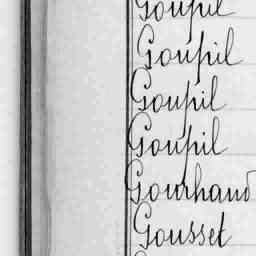 Goupil
Goupil
Goupil
Goupil
Gourhand
Gousset